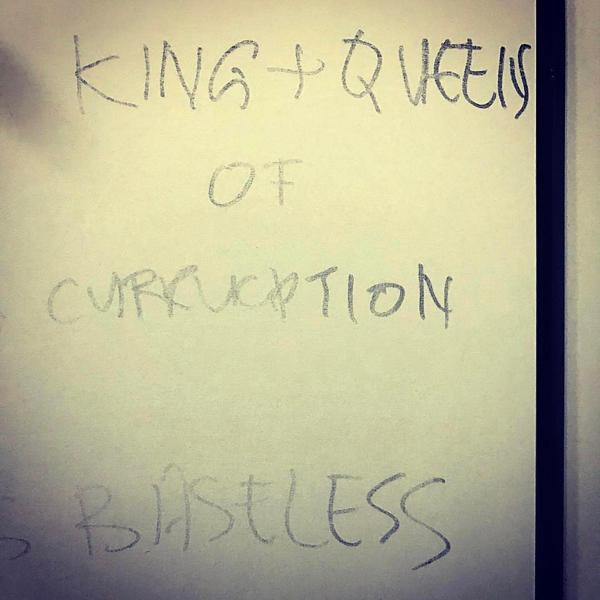 KING + QUEEN
OF
CURRUCPTION
S BASELESS